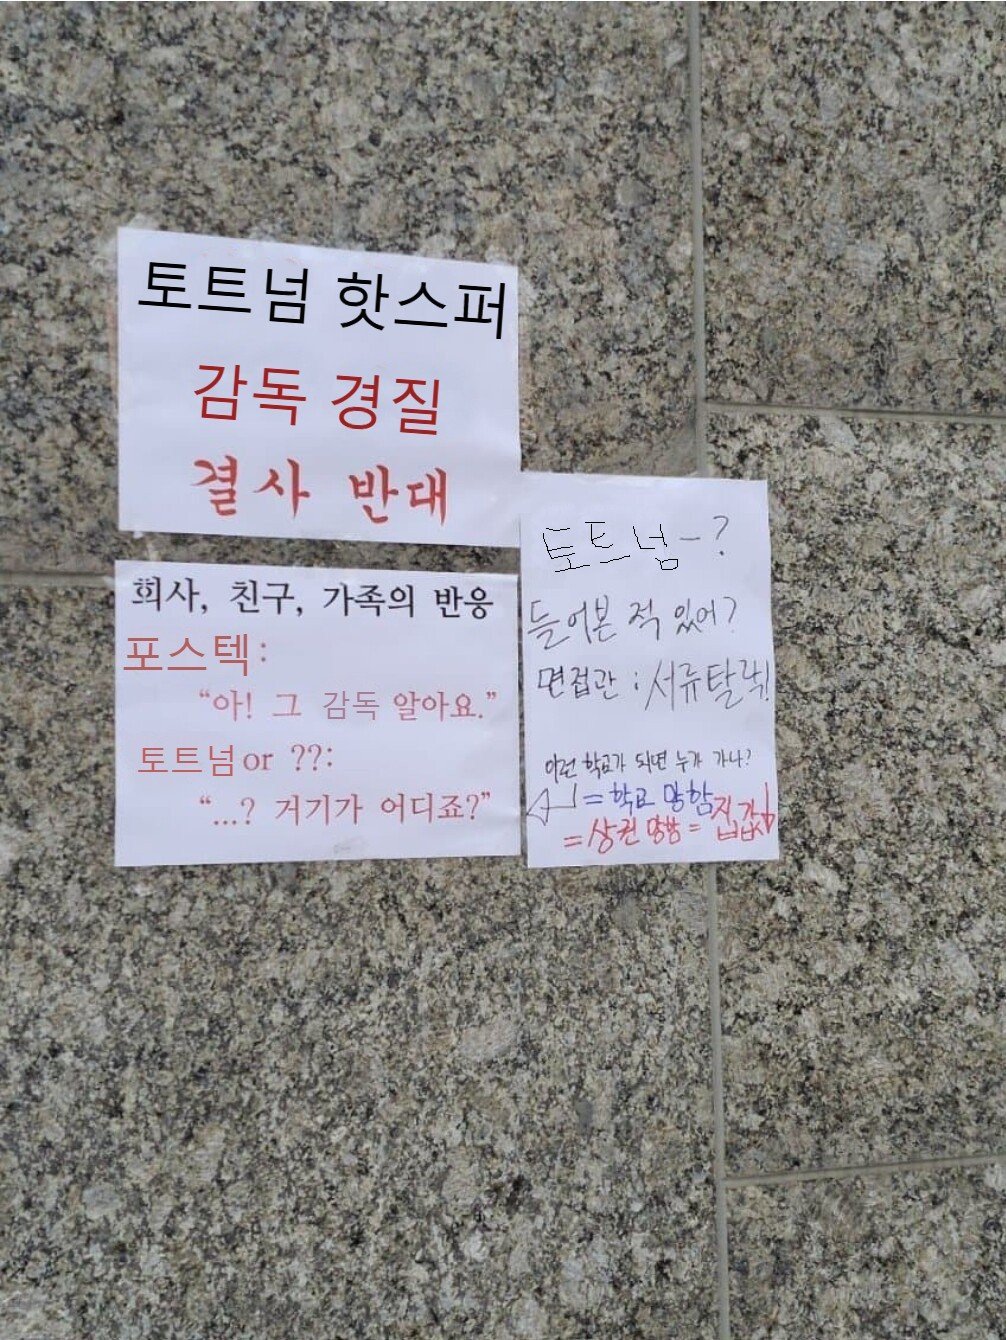 토트넘 핫스퍼
감독 경질
결사 반대
회사, 친구, 가족의 반응
포스텍:
“아! 그 감독 알아요.”
토트넘 or ??:
“...? 거기가 어디죠?”
토트넘-?
들어본 적 있어?
면접관 : 서류탈락!
이런 학교가 되면 누가 가나?
= 학교 망함
= 상권 망함 = 집값↓